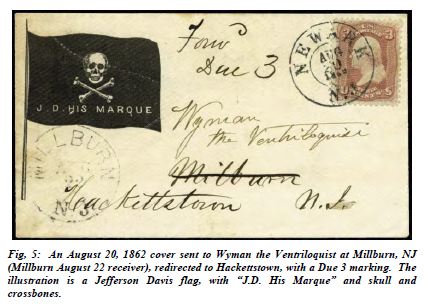 J.D. HIS MARQUE
Forwd
Due 3
NEWARK
AUG
N.J.
Wyman
the Ventriloquist
Milburn
Hackettstown N.J.
MILLBURN
N.J.
Fig, 5: An August 20, 1862 cover sent to Wyman the Ventriloquist at Millburn, NJ
(Millburn August 22 receiver), redirected to Hackettstown, with a Due 3 marking. The
illustration is a Jefferson Davis flag, with "J.D. His Marque" and skull and
crossbones.